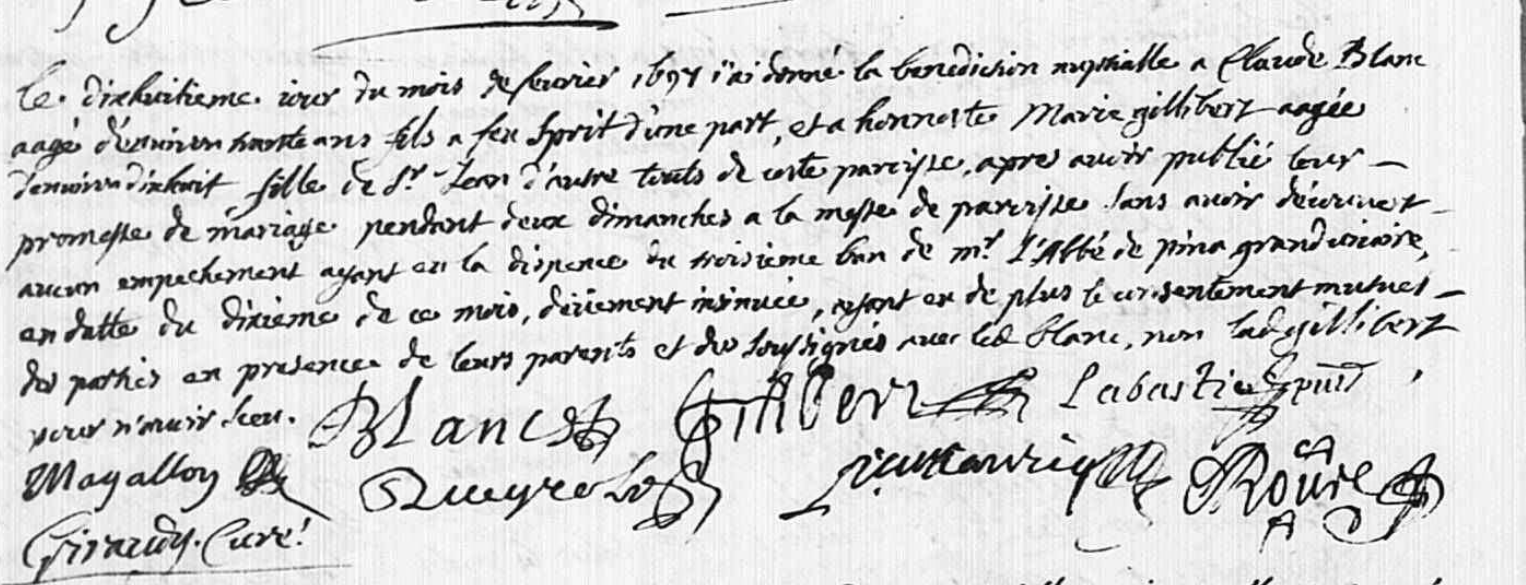 Le dixhuitieme iour du mois de feurier 1697 i'ai donné la benediction nuptialle a Claude Blanc
aagé d'enuiron trante ans fils a feu Sprit d'une part, et a honneste Marie gillibert aagée
d'enuiron dixhuit fille de Sr Jean d'autre touts de ceste paroisse, apres auoir publié leur
promesse de mariage pendant deux dimanches a la messe de paroisse sans auoir découuert
aucun empechement ayant eu la dispence du troisieme ban de mr l'Abbé de pina grand uicaire,
en datte du dixieme de ce mois, deüement insinuée, ayant eu de plus le consentement mutuel
des parties en presence de leurs parents et des soussignés auec led blanc, non lad gillibert
pour n'auoir sceu.
Blanc Gillibert Labastie
Magallon Queyrel Roure
Giraudy. Curé!